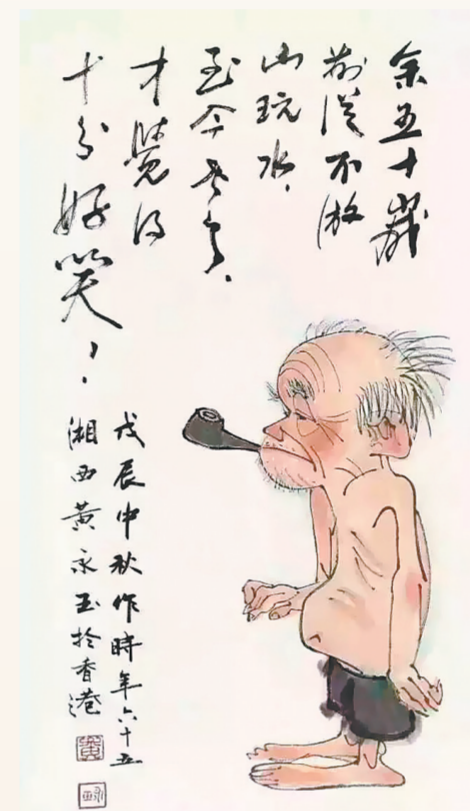 余五十歲
前從不游
山玩水,
至今老了,
才覺得
十分好笑!
戊辰中秋作時年六十五
湘西黃永玉於香港
黃